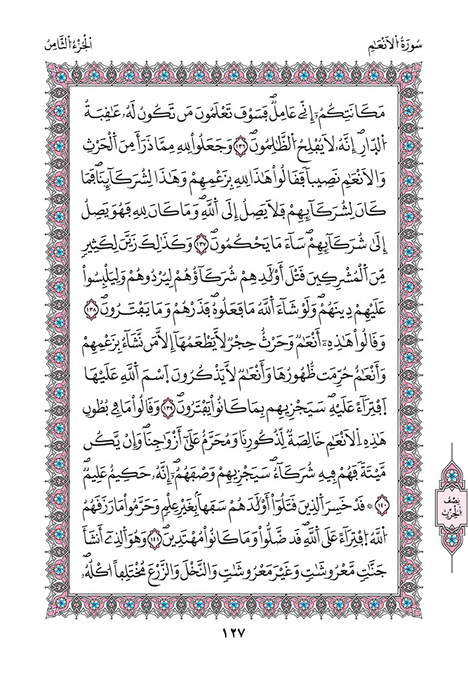 سُورَةُ الْأَنْعَامِ
الْجُزْءُ الثَّامِنُ
مَكَانَتِكُمْ إِنِّي عَامِلٌ فَسَوْفَ تَعْلَمُونَ مَن تَكُونُ لَهُۥ عَٰقِبَةُ
اُ۬لدّ۪ارِۖ إِنَّهُۥ لَا يُفْلِحُ اُ۬لظَّٰلِمُونَۖ ١٣٦ وَجَعَلُواْ لِلهِ مِمَّا ذَرَأَ مِنَ اَ۬لْحَرْثِ
وَالَانْعَٰمِ نَصِيباٗ فَقَالُواْ هَٰذَا لِلهِ بِزَعْمِهِمْ وَهَٰذَا لِشُرَكَآئِنَاۖ فَمَا
كَانَ لِشُرَكَآئِهِمْ فَلَا يَصِلُ إِلَى اَ۬للَّهِۖ وَمَا كَانَ لِلهِ فَهُوَ يَصِلُ
إِلَىٰ شُرَكَآئِهِمْۖ سَآءَ مَا يَحْكُمُونَۖ ١٣٧ وَكَذَٰلِكَ زَيَّنَ لِكَثِيرٖ
مِّنَ اَ۬لْمُشْرِكِينَ قَتْلَ أَوْلَٰدِهِمْ شُرَكَآؤُهُمْ لِيُرْدُوهُمْ وَلِيَلْبِسُواْ
عَلَيْهِمْ دِينَهُمْۖ وَلَوْ شَآءَ اَ۬للَّهُ مَا فَعَلُوهُۖ فَذَرْهُمْ وَمَا يَفْتَرُونَۖ ١٣٨
وَقَالُواْ هَٰذِهِۦٓ أَنْعَٰمٞ وَحَرْثٌ حِجْرٞ لَّا يَطْعَمُهَآ إِلَّا مَن نَّشَآءُ بِزَعْمِهِمْ
وَأَنْعَٰمٌ حُرِّمَتْ ظُهُورُهَا وَأَنْعَٰمٞ لَّا يَذْكُرُونَ اَ۪سْمَ اَ۬للَّهِ عَلَيْهَا
اَ۪فْتِرَآءً عَلَيْهِۖ سَيَجْزِيهِم بِمَا كَانُواْ يَفْتَرُونَۖ ١٣٩ وَقَالُواْ مَا فِي بُطُونِ
هَٰذِهِ اِ۬لَانْعَٰمِ خَالِصَةٞ لِّذُكُورِنَا وَمُحَرَّمٌ عَلَىٰٓ أَزْوَٰجِنَاۖ وَإِنْ يَّكُن
مَّيْتَةٗ فَهُمْ فِيهِ شُرَكَآءُۖ سَيَجْزِيهِمْ وَصْفَهُمْۖ إِنَّهُۥ حَكِيمٌ عَلِيمٞۖ
١٤٠ ۞ قَدْ خَسِرَ اَ۬لذِينَ قَتَلُوٓاْ أَوْلَٰدَهُمْ سَفَهاَۢ بِغَيْرِ عِلْمٖ وَحَرَّمُواْ مَا رَزَقَهُمُ
اُ۬للَّهُ اُ۪فْتِرَآءً عَلَى اَ۬للَّهِۖ قَد ضَّلُّواْ وَمَا كَانُواْ مُهْتَدِينَۖ ١٤١ وَهُوَ اَ۬لذِےٓ أَنشَأَ
جَنَّٰتٖ مَّعْرُوشَٰتٖ وَغَيْرَ مَعْرُوشَٰتٖ وَالنَّخْلَ وَالزَّرْعَ مُخْتَلِفاً اُكْلُهُۥ
نِصْفُ
الْحِزْبِ
١٢٧